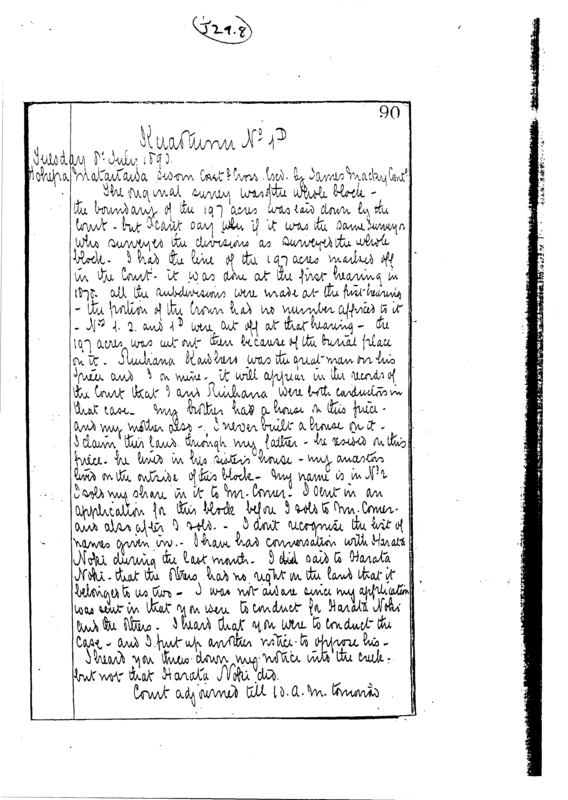 J29.8
90
Kuaotunu No 1D
Tuesday 8th July 1890.
Hohepa Mataitaua sworn Contd Cross. Exd. by James Mackay Contd
The original survey was of the whole block -
the boundary of the 197 acres was laid down by the
Court - but I cant say if it was the same Surveyor
who surveyed the divisions as surveyed the whole
block. I had the line of the 197 acres marked off
in the Court. it was done at the first hearing in
1878 all the subdivisions were made at the first hearing
- the portion of the Crown had no number affixed to it
- Nos 1. 2. and 1D were cut off at that hearing - the
197 acres was cut out then because of the burial place
on it. was the great man on his
piece and I on mine. it will appear in the records of
the Court that I and were both conductors in
that case. My brother had a house on this piece.
and my mother also - I never built a house on it -
I claim this land through my father - he resided on this
piece. he lived in his sister's house - my ancestors
lived on the outside of this block. My name is in No 2
I sold my share in it to Mr. Comer. I sent in an
application for this block before I sold to Mr. Comer.
and also after I sold. - I dont recognize the list of
names given in. - I have had conversation with Harata
Noki during the last month. I did said to Harata
Noki - that the others had no right on the land that it
belongs to us two - I was not aware since my application
was sent in that you were to conduct for Harata Noki
and the others. I heard that you were to conduct the
case - and I put up another notice to oppose his -
I heard you threw down my notice into the creek.
but not that Harata Noki did.
Court adjourned till 10. A.M. tomorrow